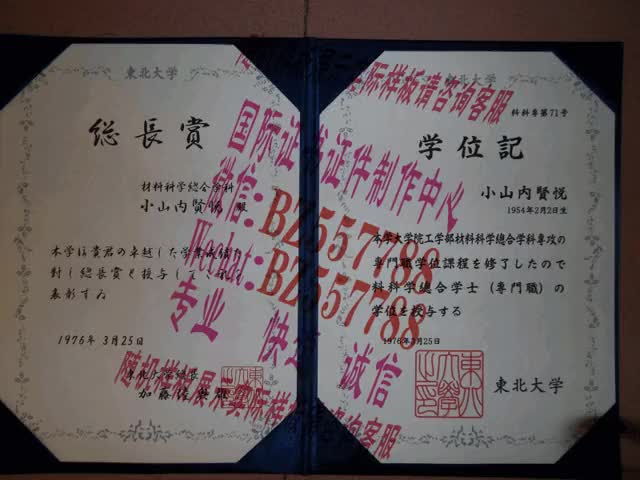 東北大学
総長賞
材料科学総合学科
小山内賢悦 殿
本学は貴君の卓越した学業成績に
対し総長賞を授与して
表彰する
1976年 3月25日
東北大学総長
東北大学
学位記
科科専第71号
小山内賢悦
1954年2月2日生
本学大学院工学部材料科学総合学科専攻の
専門職学位課程を修了したので
料科学総合学士（専門職）の
学位を授与する
1976年3月25日
東北大学
国际证书证件制作中心
微信:BZ557788
Wechat:BZ557788
专业 快速 诚信
随机样板展示实际样板请咨询客服